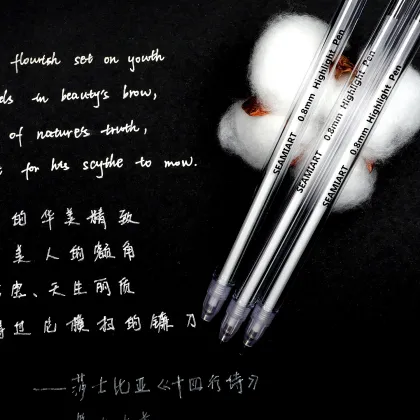 flourish set on youth
in beauty's brow,
of nature's truth,
for his scythe to mow.
的华美精致
美人的额角
、天生丽质
过它横扫的镰刀
——莎士比亚《十四行诗》
SEAMIART 0.8mm Highlight Pen
SEAMIART 0.8mm Highlight Pen
SEAMIART 0.8mm Highlight Pen